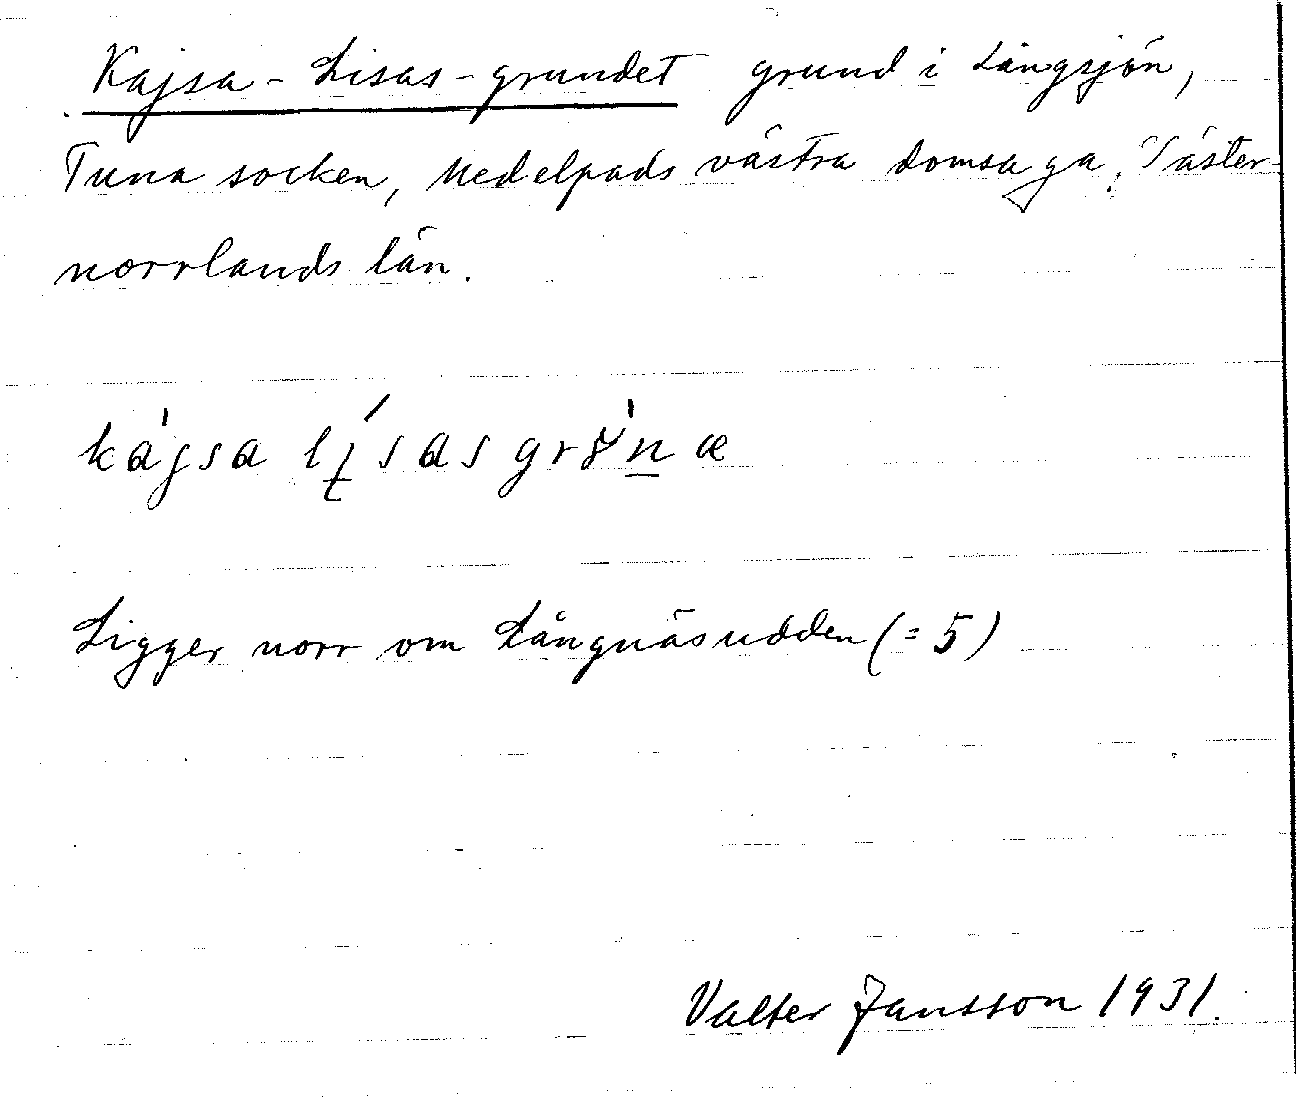 Kajsa-Lisas-grundet grund i Långsjön,
Tuna socken, Medelpads västra domsaga, Väster-
norrlands län.
kájsa lísasgrv́næ
Ligger norr om Långnäsudden (= 5)
Valter Jansson 1931.